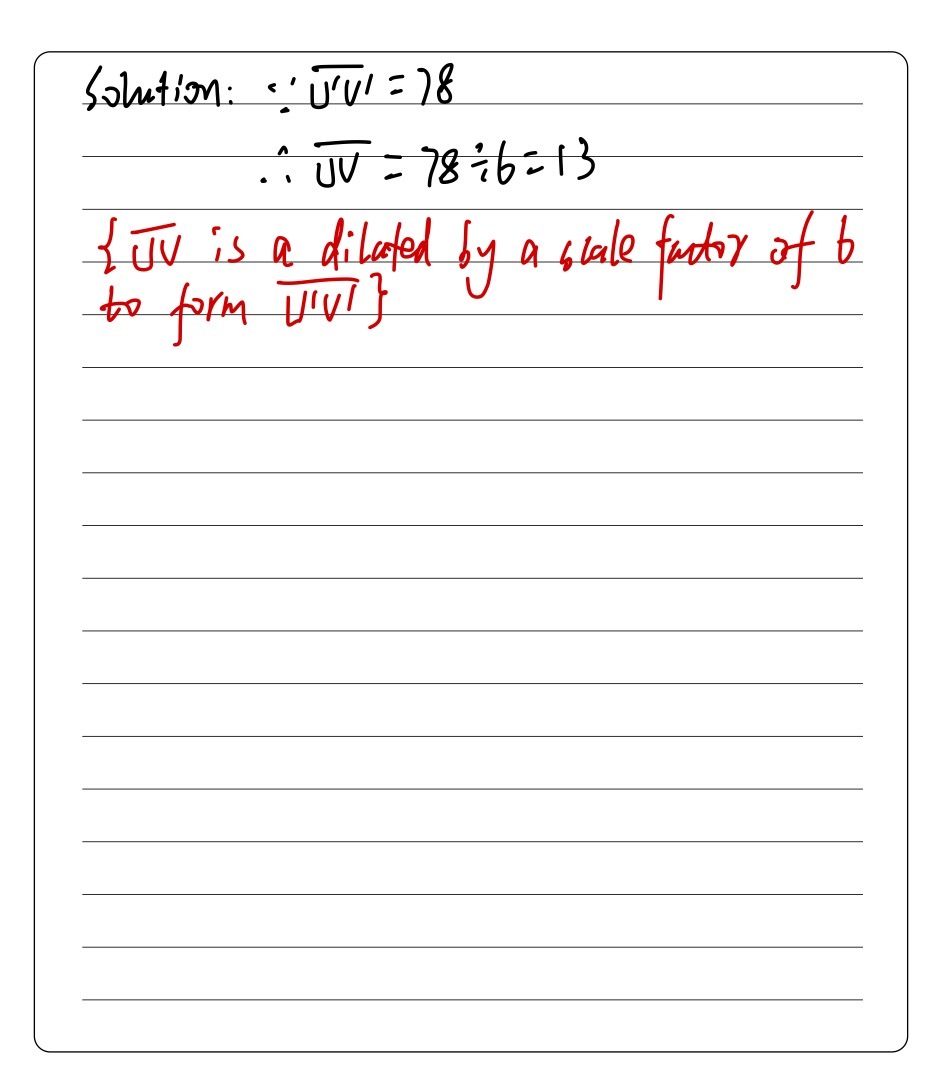 Solution: ∵ $\overline{U'V'}$ = 78
∴ $\overline{UV}$ = 78 ÷ 6 = 13
{$\overline{UV}$ is a dilated by a scale factor of 6
to form $\overline{U'V'}$}